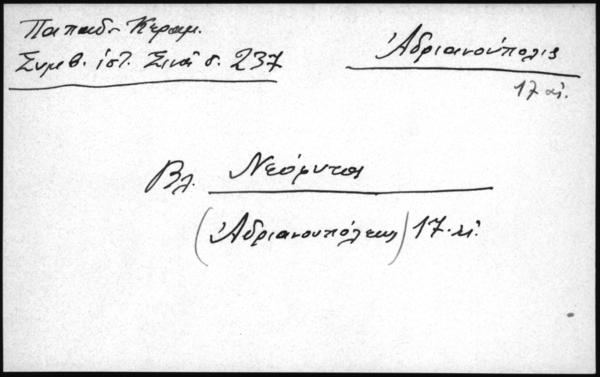 Παπαδ. Κεραμ.
Συμβ. ἱστ. Σινᾶ σ. 237
Ἀδριανούπολις
17 αἰ.
Βλ. Νεόφυτος
(Ἀδριανουπόλεως) 17. αἰ.